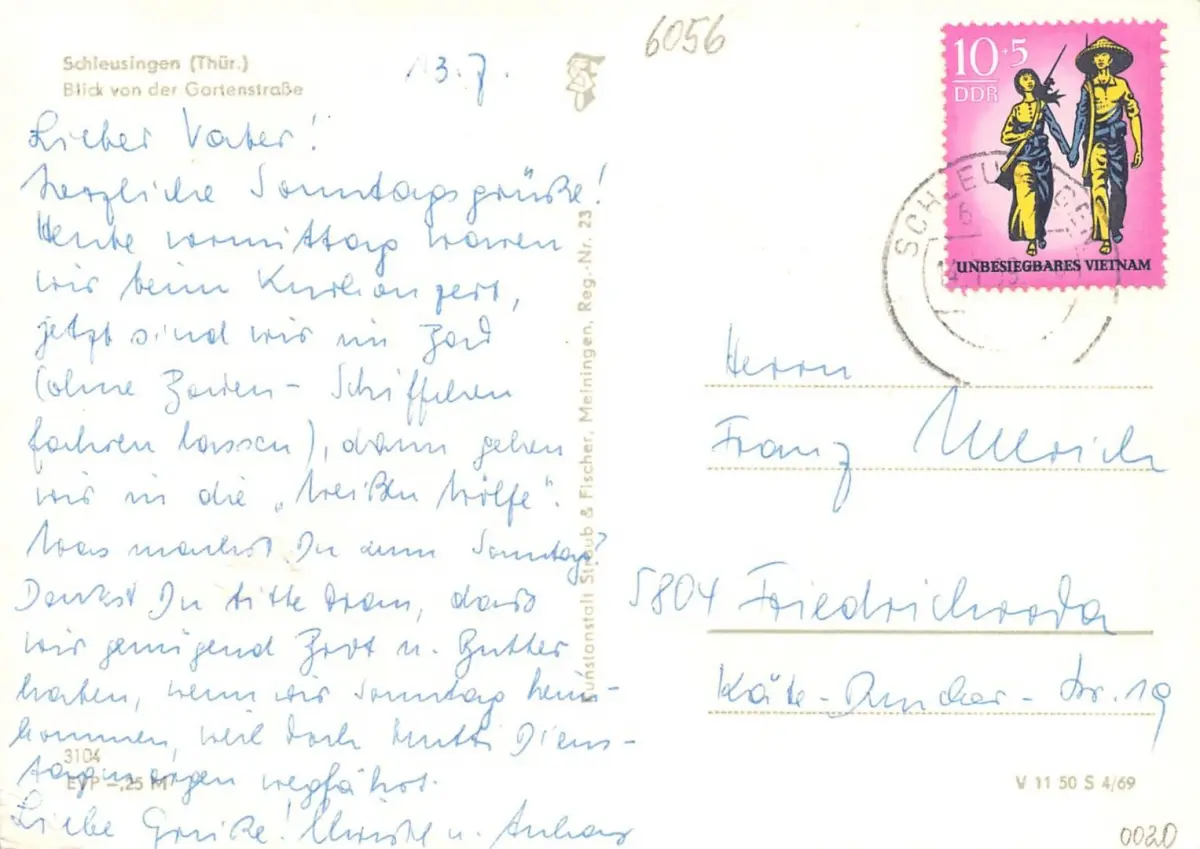 Schleusingen (Thür.)
Blick von der Gartenstraße
13.7.
6056
10+5
DDR
UNBESIEGBARES VIETNAM
SCHLEUSINGEN
Lieber Vater!
Herzliche Sonntagsgrüße!
Heute vormittag waren
wir beim Kurkonzert,
jetzt sind wir im Bad
(ohne Baden - Schiffchen
fahren lassen), dann gehen
wir in die "Weißen Wölfe".
Was machst Du zum Sonntag?
Denkst Du bitte dran, dass
wir genügend Brot u. Butter
haben, wenn wir Sonntag heim-
kommen, weil doch Mutti Diens-
tagmorgen wegfährt.
Liebe Grüße! u. Anhang
Kunstanstalt Straub & Fischer, Meiningen, Reg.-Nr. 23
Herrn
Franz Ullrich
5804 Friedrichroda
Käte-Duncker-Str. 19
3104
EVP -,25 M
V 11 50 S 4/69
0020